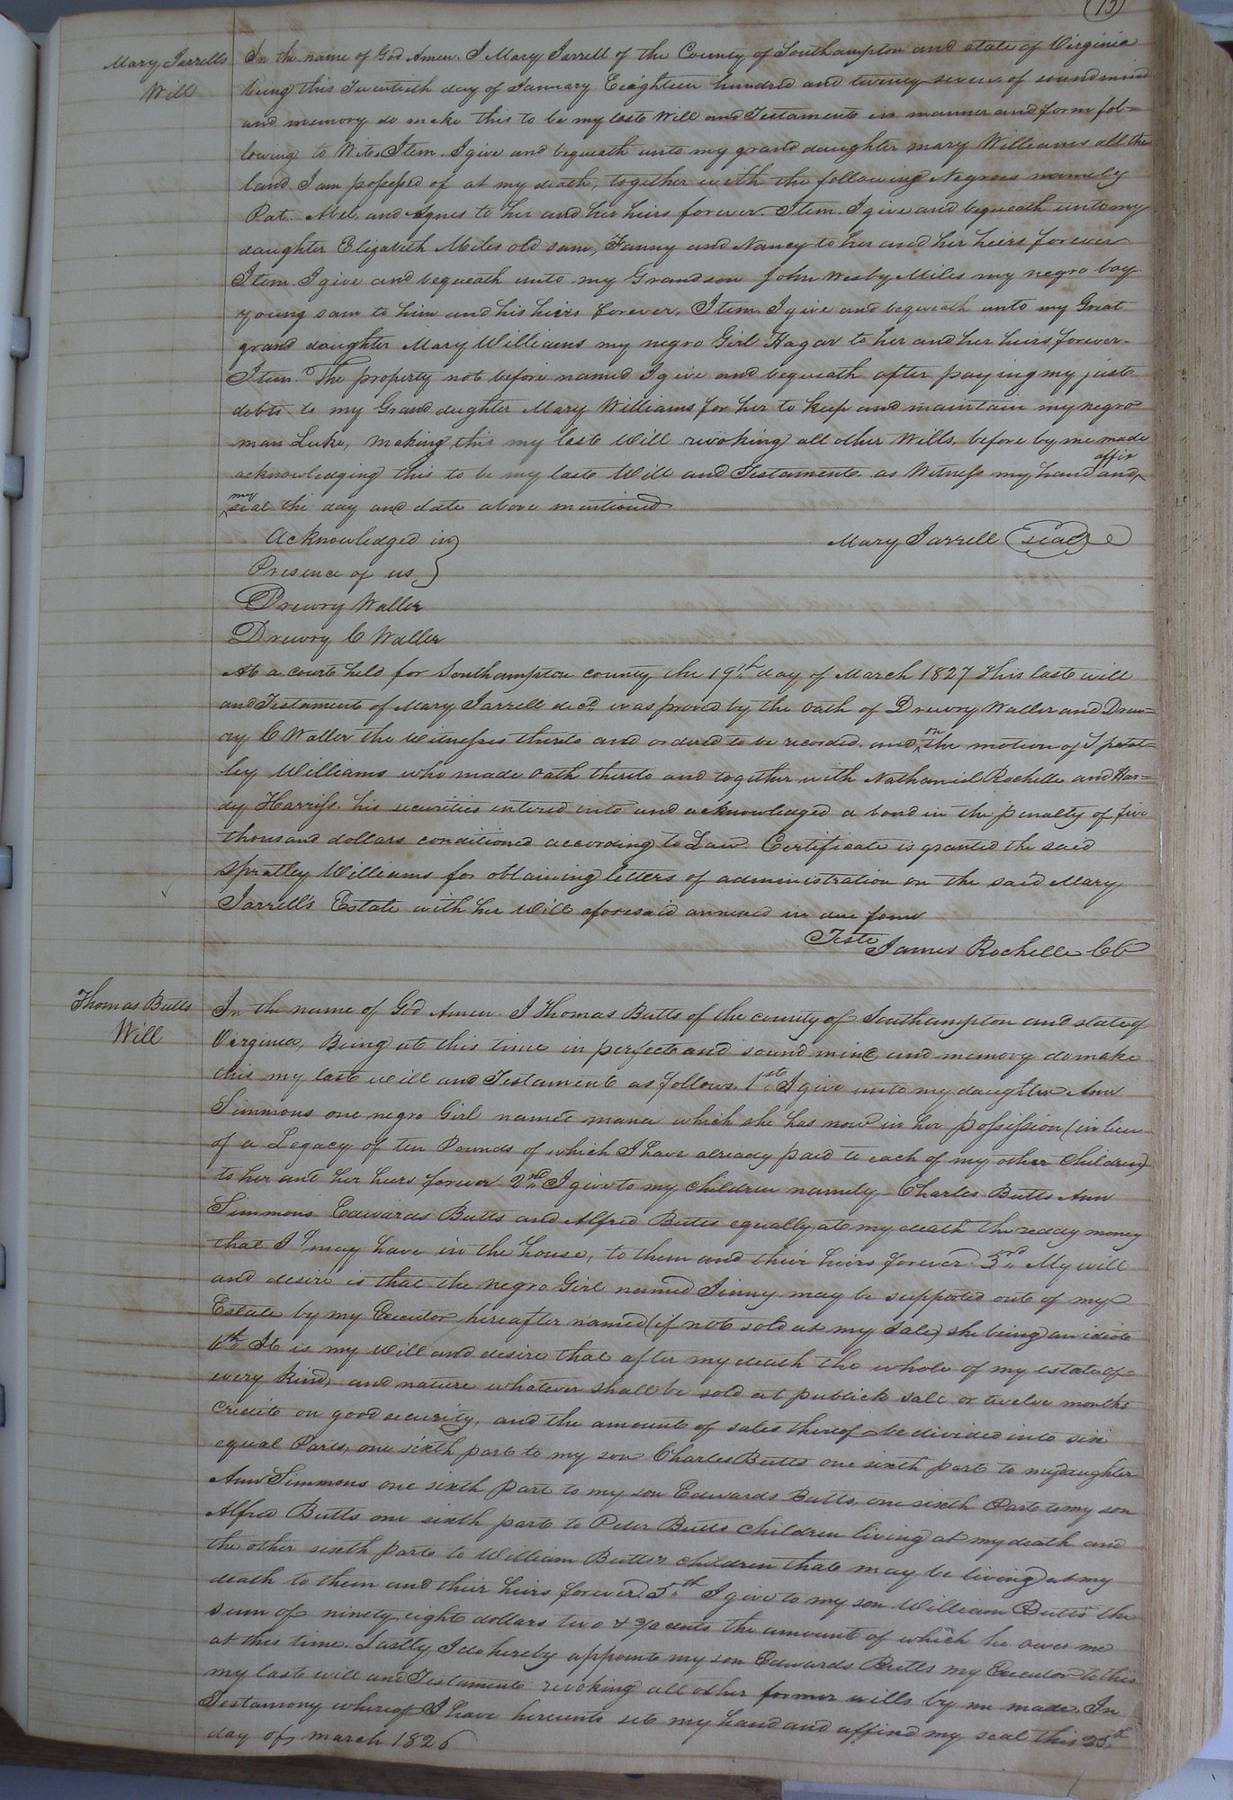 (13)
Mary Jarrells
Will
In the name of God Amen. I Mary Jarrell of the County of Southampton and state of Virginia
being this Twentieth day of January Eighteen hundred and twenty seven of sound mind
and memory do make this to be my last Will and Testament in manner and form fol=
lowing to Wit. Item. I give and bequeath unto my grand daughter mary Williams all the
land I am possessed of at my death, together with the following Negroes namely
Pat Abel and Agnes to her and her heirs forever. Item. I give and bequeath unto my
daughter Elizabeth Miles old sam, Fanny and Nancy to her and her heirs forever
Item. I give and bequeath unto my Grandson John Wesby Miles my negro boy
young sam to him and his heirs forever. Item. I give and bequeath unto my Great
grand daughter Mary Williams my negro Girl Hagar to her and her heirs forever.
Item. The property not before named I give and bequeath after paying my just
debts to my Grand daughter Mary Williams for her to keep and maintain my negro
man Luke, making this my last Will revoking all other Wills, before by me made
acknowledging this to be my last Will and Testament. as Witness my hand and affix
my seal the day and date above mentioned
Acknowledged in }
Presence of us }
Mary Jarrell (seal)
Drewry Waller
Drewry C Waller
At a court held for Southampton county the 19th day of March 1827 This last will
and Testament of Mary Jarrell decd was proved by the Oath of Drewry Waller and Drew=
ry C Waller the Witnesses thereto and ordered to be recorded. and on the motion of Sprat=
ley Williams who made oath thereto and together with Nathaniel Rochelle and Har=
dy Harriss his securities entered into and acknowledged a bond in the penalty of five
thousand dollars conditioned according to Law. Certificate is granted the said
Spratley Williams for obtaining letters of administration on the said Mary
Jarrell's Estate with her Will aforesaid annexed in due form
Teste James Rochelle CC
Thomas Butts
Will
In the name of God Amen. I Thomas Butts of the county of Southampton and state of
Virginia, Being at this time in perfect and sound mind and memory do make
this my last will and Testament as follows. 1st I give unto my daughter Ann
Simmons one negro Girl named which she has now in her possession (in lieu
of a Legacy of ten Pounds of which I have already paid to each of my other Children)
to her and her heirs forever 2nd I give to my children namely Charles Butts Ann
Simmons Edwards Butts and Alfred Butts equally at my death the ready money
that I may have in the house, to them and their heirs forever. 3rd My will
and desire is that the negro Girl named Jinny may be supported out of my
Estate by my Executor hereafter named (if not sold at my sale) she being an idiote
4th It is my will and desire that after my death the whole of my estate of
every kind, and nature whatever shall be sold at publick sale or twelve months
credit on good security, and the amount of sales thereof be divided into six
equal Parts, one sixth part to my son Charles Butts one sixth part to my daughter
Ann Simmons one sixth part to my son Edwards Butts, one sixth Part to my son
Alfred Butts one sixth part to Peter Butts children living at my death and
the other sixth part to William Butts children that may be living at my
death to them and their heirs forever. 5th I give to my son William Butts the
sum of ninety eight dollars two & cents the amount of which he owes me
at this time. Lastly I do hereby appoint my son Edwards Butts my Executor to this
my last will and Testament revoking all other former wills by me made In
Testamony whereof I have hereunto set my hand and affixd my seal this 25th
day of march 1826